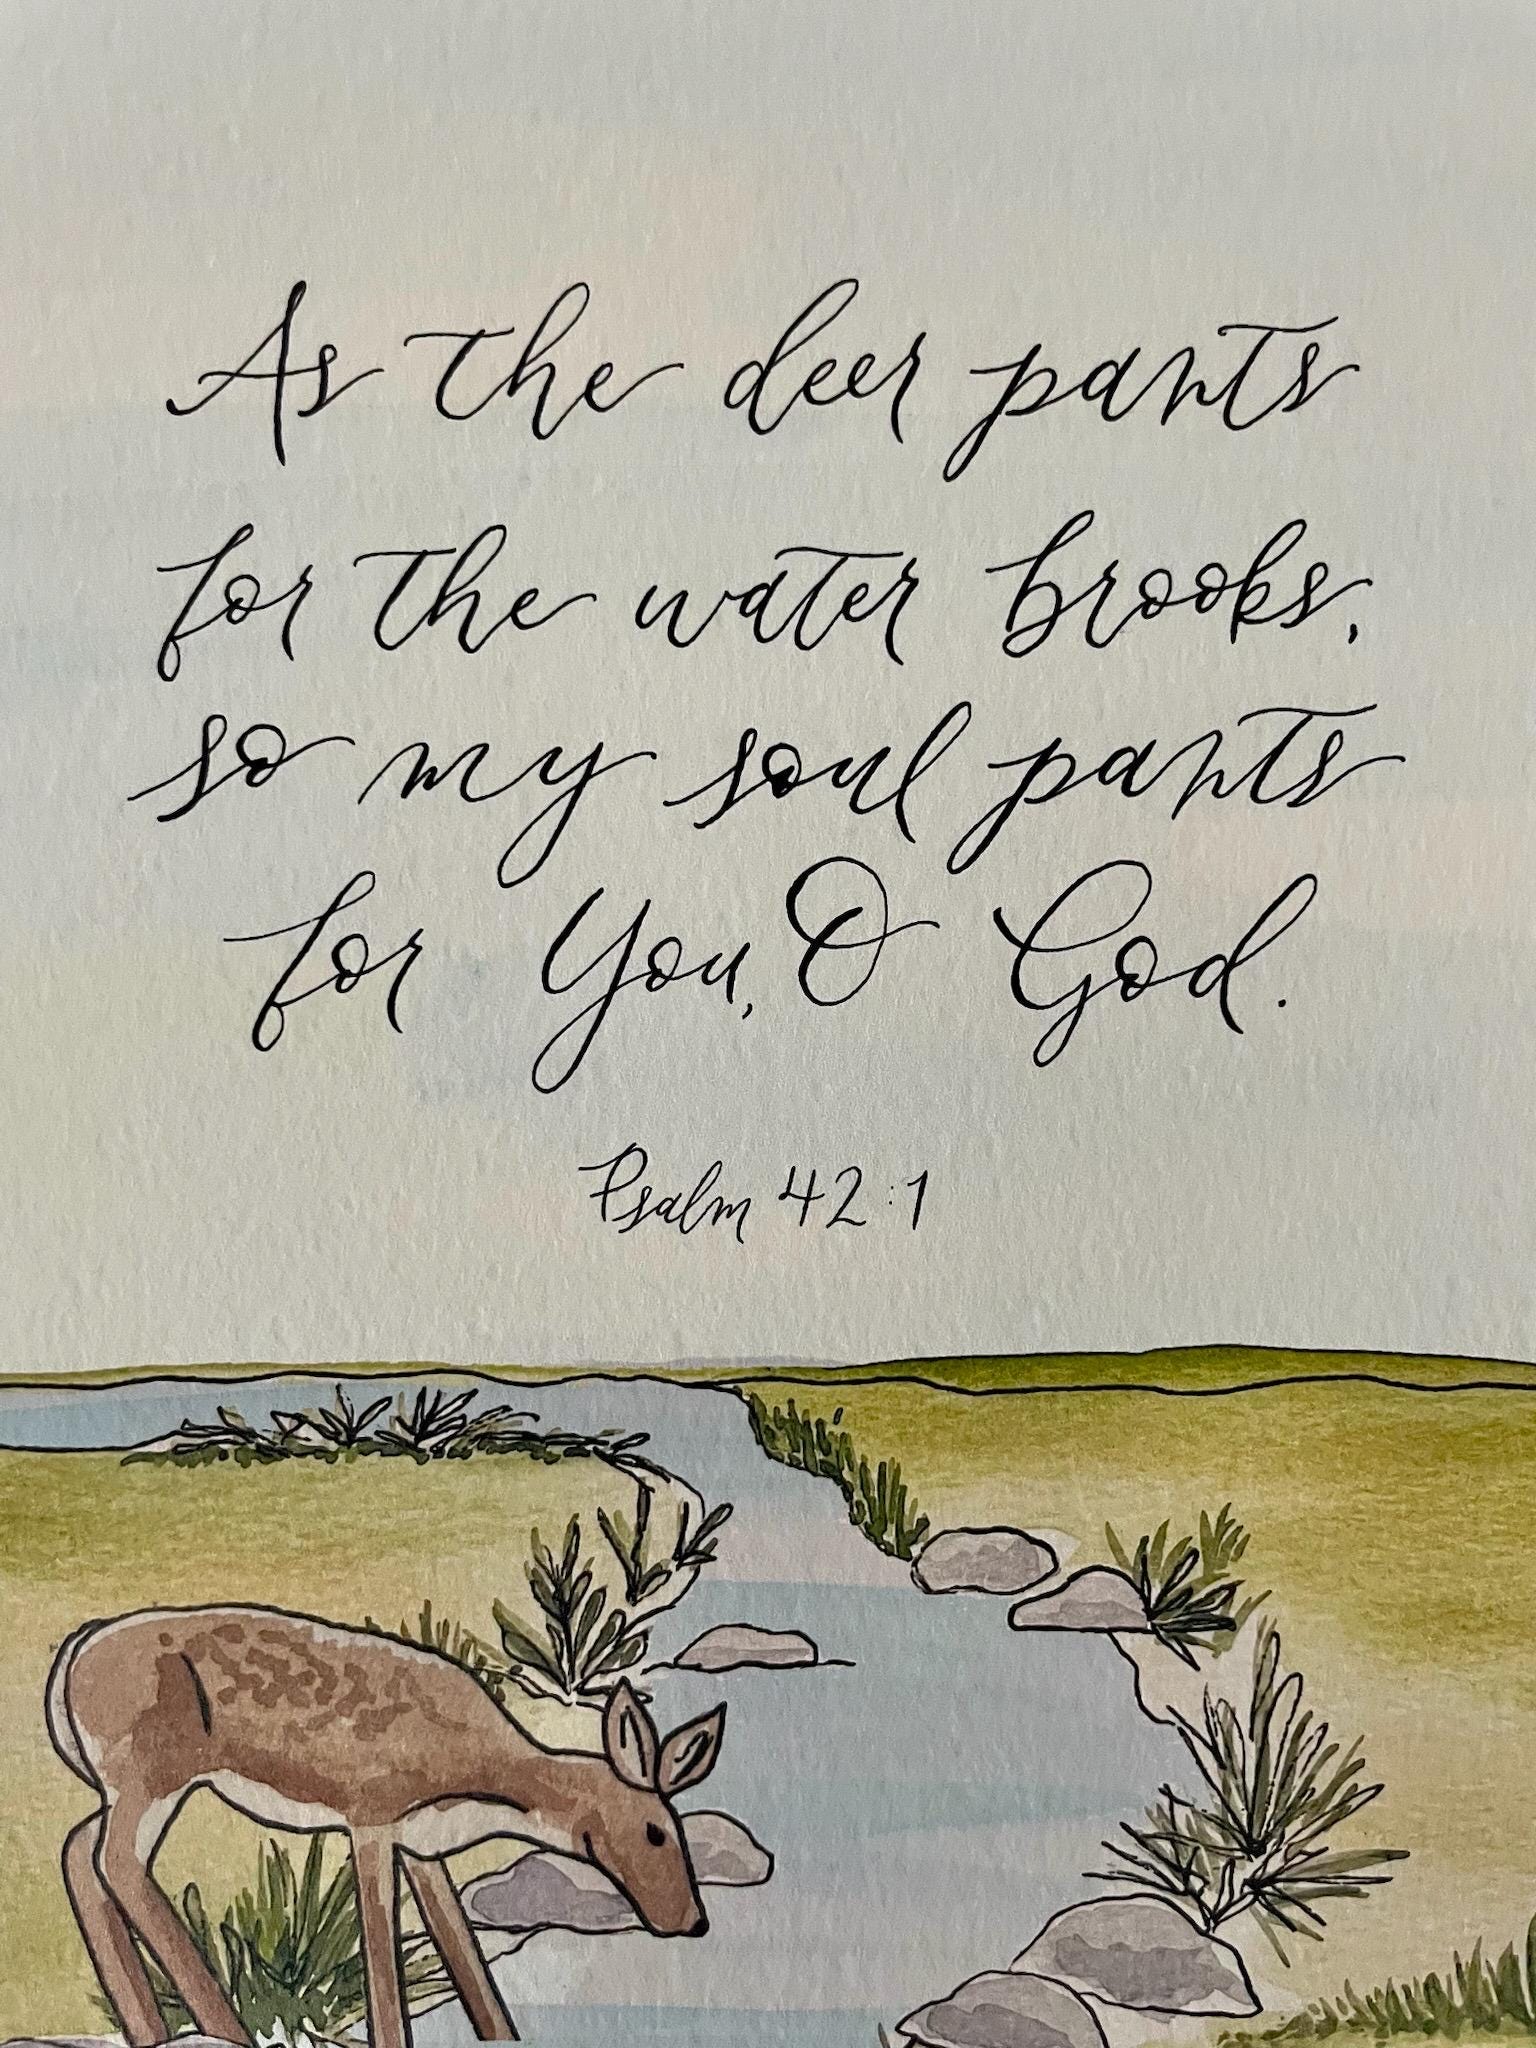 As the deer pants
for the water brooks,
so my soul pants
for You, O God.
Psalm 42:1